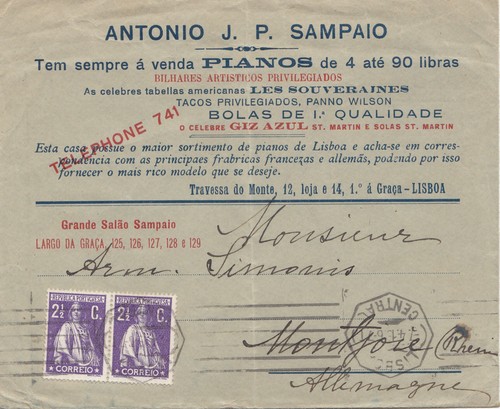 ANTONIO J. P. SAMPAIO
Tem sempre á venda PIANOS de 4 até 90 libras
BILHARES ARTISTICOS PRIVILEGIADOS
As celebres tabellas americanas LES SOUVERAINES
TACOS PRIVILEGIADOS, PANNO WILSON
BOLAS DE I.ª QUALIDADE
O CELEBRE GIZ AZUL ST. MARTIN E SOLAS ST. MARTIN
TELEPHONE 741
Esta casa possue o maior sortimento de pianos de Lisboa e acha-se em corres-
pondencia com as principaes frabricas francezas e allemãs, podendo por isso
fornecer o mais rico modelo que se deseje.
Travessa do Monte, 12, loja e 14, 1.º á Graça—LISBOA
Grande Salão Sampaio
LARGO DA GRAÇA, 125, 126, 127, 128 e 129
Monsieur
Arm. Simonis
Montjoie (Rhein
Allemagne
REPUBLICA PORTUGUESA
2½ C.
CORREIO
REPUBLICA PORTUGUESA
2½ C.
CORREIO
CENTRAL